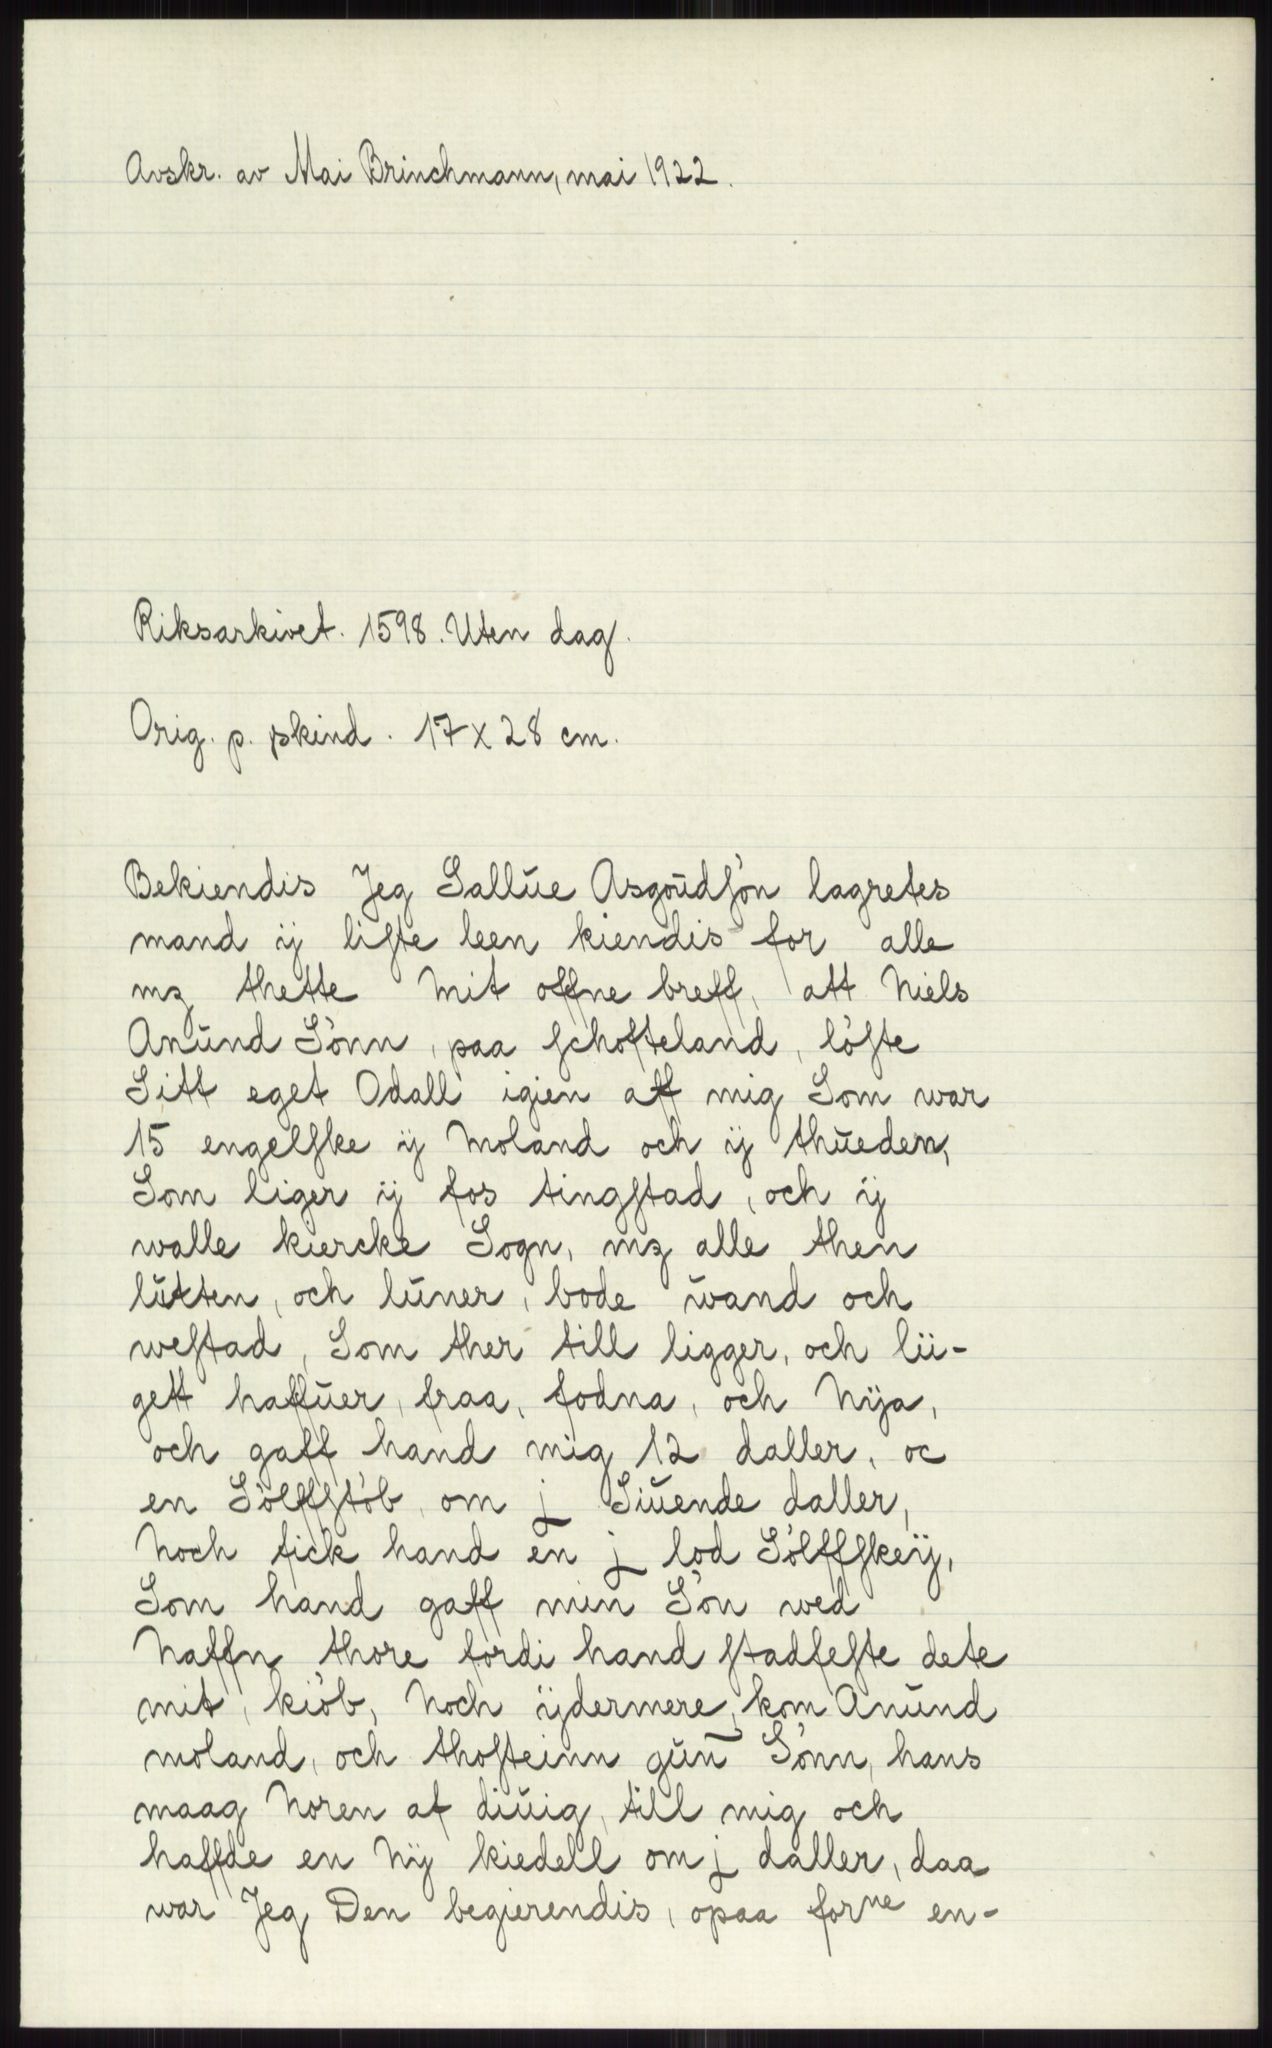 Avskr. av Mai Brinchmann, mai 1922.
Riksarkivet. 1598. Uten dag.
Orig. p. skind. 17 x 28 cm.
Bekiendis Jeg Sallŭe Asgoŭdſön lagretes
mand ij liſte leen kiendis for alle
mz thette mit offne breff, att Niels
Anŭnd Sönn, paa ſchofteland, löſte
Sitt eget Odall igien aff mig Som war
15 engelſke ij Moland och ij thŭeden,
Som liger ij fos tingſtad, och ij
walle kiercke Sogn, mz alle then
lŭtten, och lŭner, bode wand och
weſtad, Som ther till ligger, och lii-
gett haffŭer, fraa, fodna, och Nÿa,
och gaff hand mig 12 daller, oc
en Sölffſtöb om j Siŭende daller,
Noch fick hand en j lod Sölffſkeÿ,
Som hand gaff min Sön wed
Naffn thore fordi hand ſtadfeſte dete
mit, kiöb, Noch ÿdermere, kom Anŭnd
moland, och thoſteinn gŭn̄ Sönn, hans
maag Noren af diŭig, till mig och
haffde en Nÿ kiedell om j daller, daa
war Jeg Den begierendis, opaa forne en-